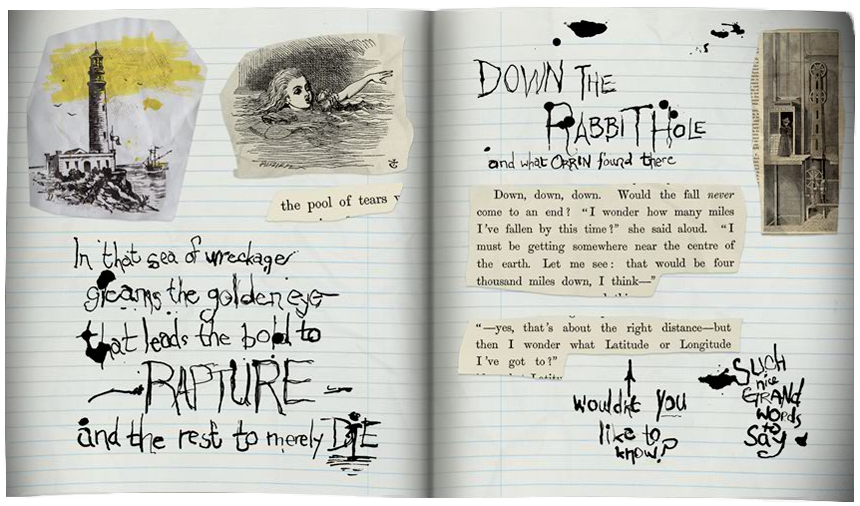 the pool of tears
In that sea of wreckage
gleams the golden eye
that leads the bold to
RAPTURE
and the rest to merely DIE
DOWN THE
RABBIT HOLE
and what ORRIN found there
Down, down, down. Would the fall never
come to an end? “I wonder how many miles
I've fallen by this time?” she said aloud. “I
must be getting somewhere near the centre of
the earth. Let me see: that would be four
thousand miles down, I think—”
“—yes, that's about the right distance—but
then I wonder what Latitude or Longitude
I've got to?”
wouldnt you
like to
know?
SUCH
nice
GRAND
WORDS
to
SAY